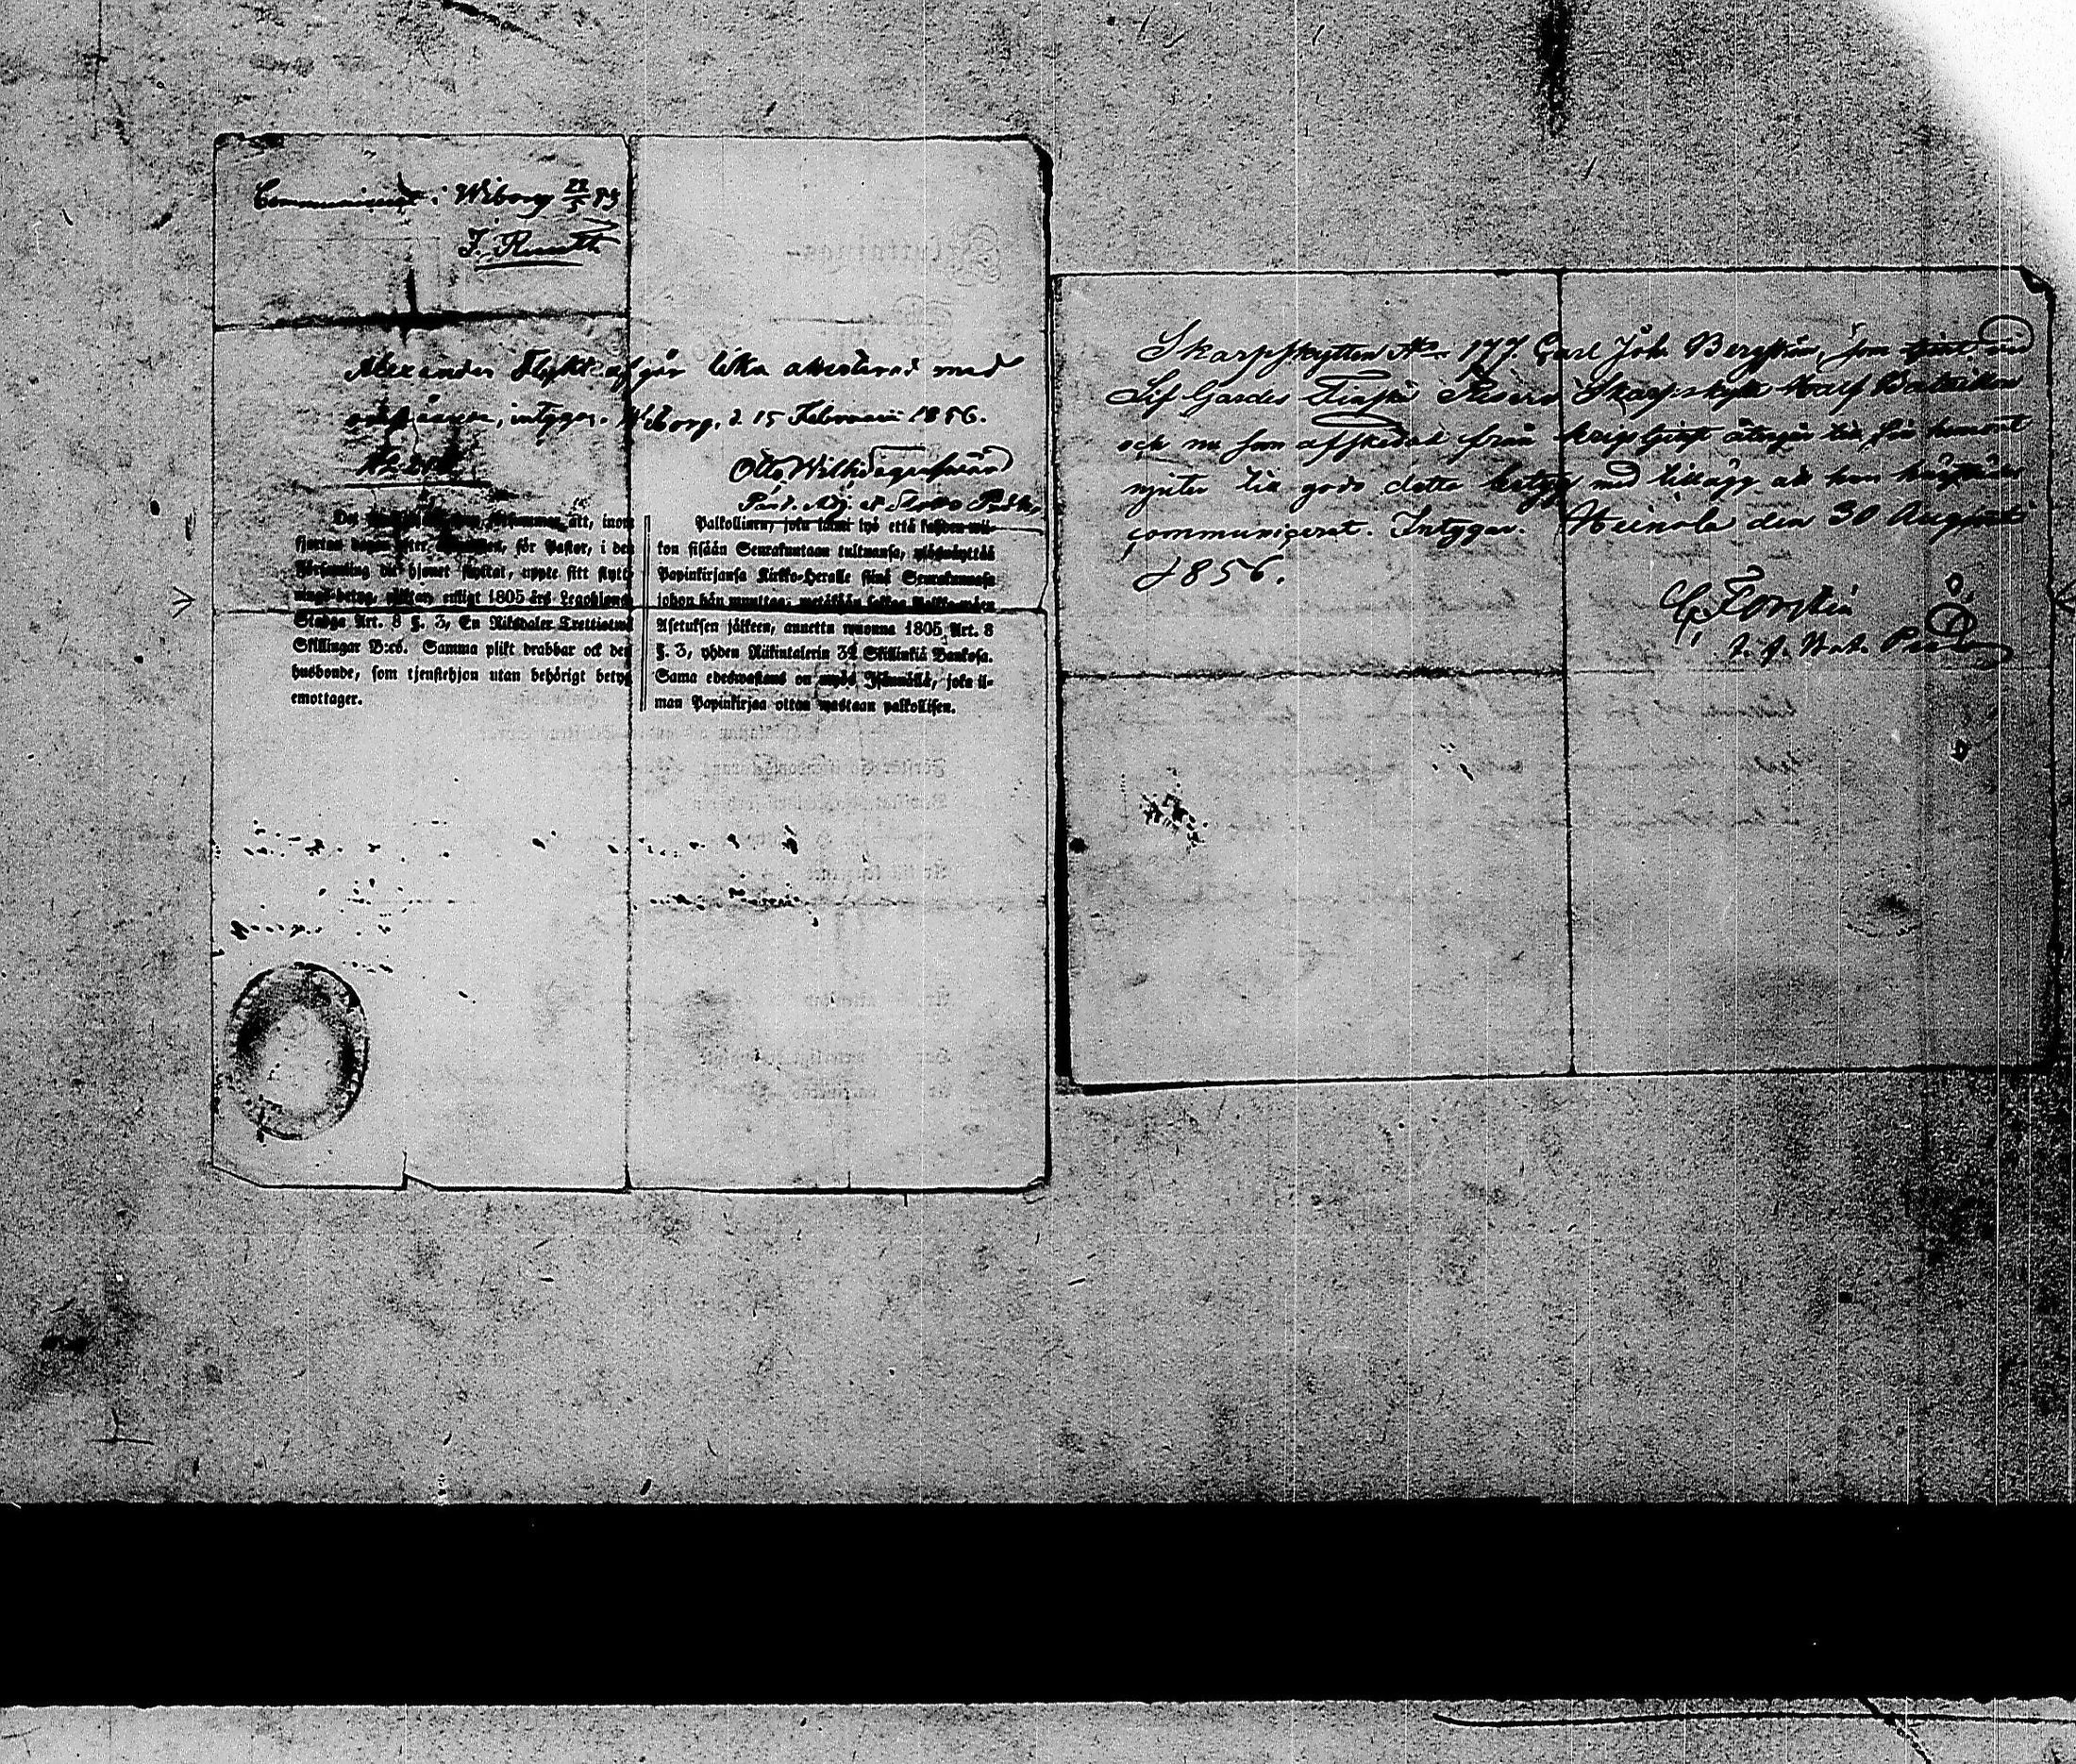 Communicerat: Wiborg 22/5
Alexander Flykt afgår lika attesterad med
intygar. Wiborg, d. 15 Februarii 1856.
Otto Wilh.
Past. Adj.
att, inom
fjorton dagar efter för Pastor, i den
Församling dit hjonet flyttat, uppte sitt flytt-
nings-betyg, enligt 1805 års Legohjons
Stadga Art. 8 §. 3, En Riksdaler Trettiotvå
Skillingar B:co. Samma plikt drabbar ock den
husbonde, som tjenstehjon utan behörigt betyg
emottager.
Palkollinen, joka ei tyé että kahden wii-
kon sisään Seurakuntaan tultuansa, ylösnäyttää
Papinkirjansa Kirkko-Herralle siinä Seurakunnassa
johon hän muuttaa,
Asetuksen jälkeen, annettu wuonna 1805 Art. 8
§. 3, yhden Riikintalerin 32 Skillinkiä Bankosa.
Sama edeswastaus on myös Isännällä, joka il-
man Papinkirjaa ottaa wastaan palkollisen.
Skarpskytten No 177 Carl Joh. Bergström, som tjent vid
Lif Gardes Finska Reserv Skarpskytte Half Bataillon
och nu som afskedad från krigstjenst återgår till sin hemort
njuter till godo detta betyg med tillägg att han
communicerat. Intygar. Heinola den 30 Augusti
1856.
C. Forstén